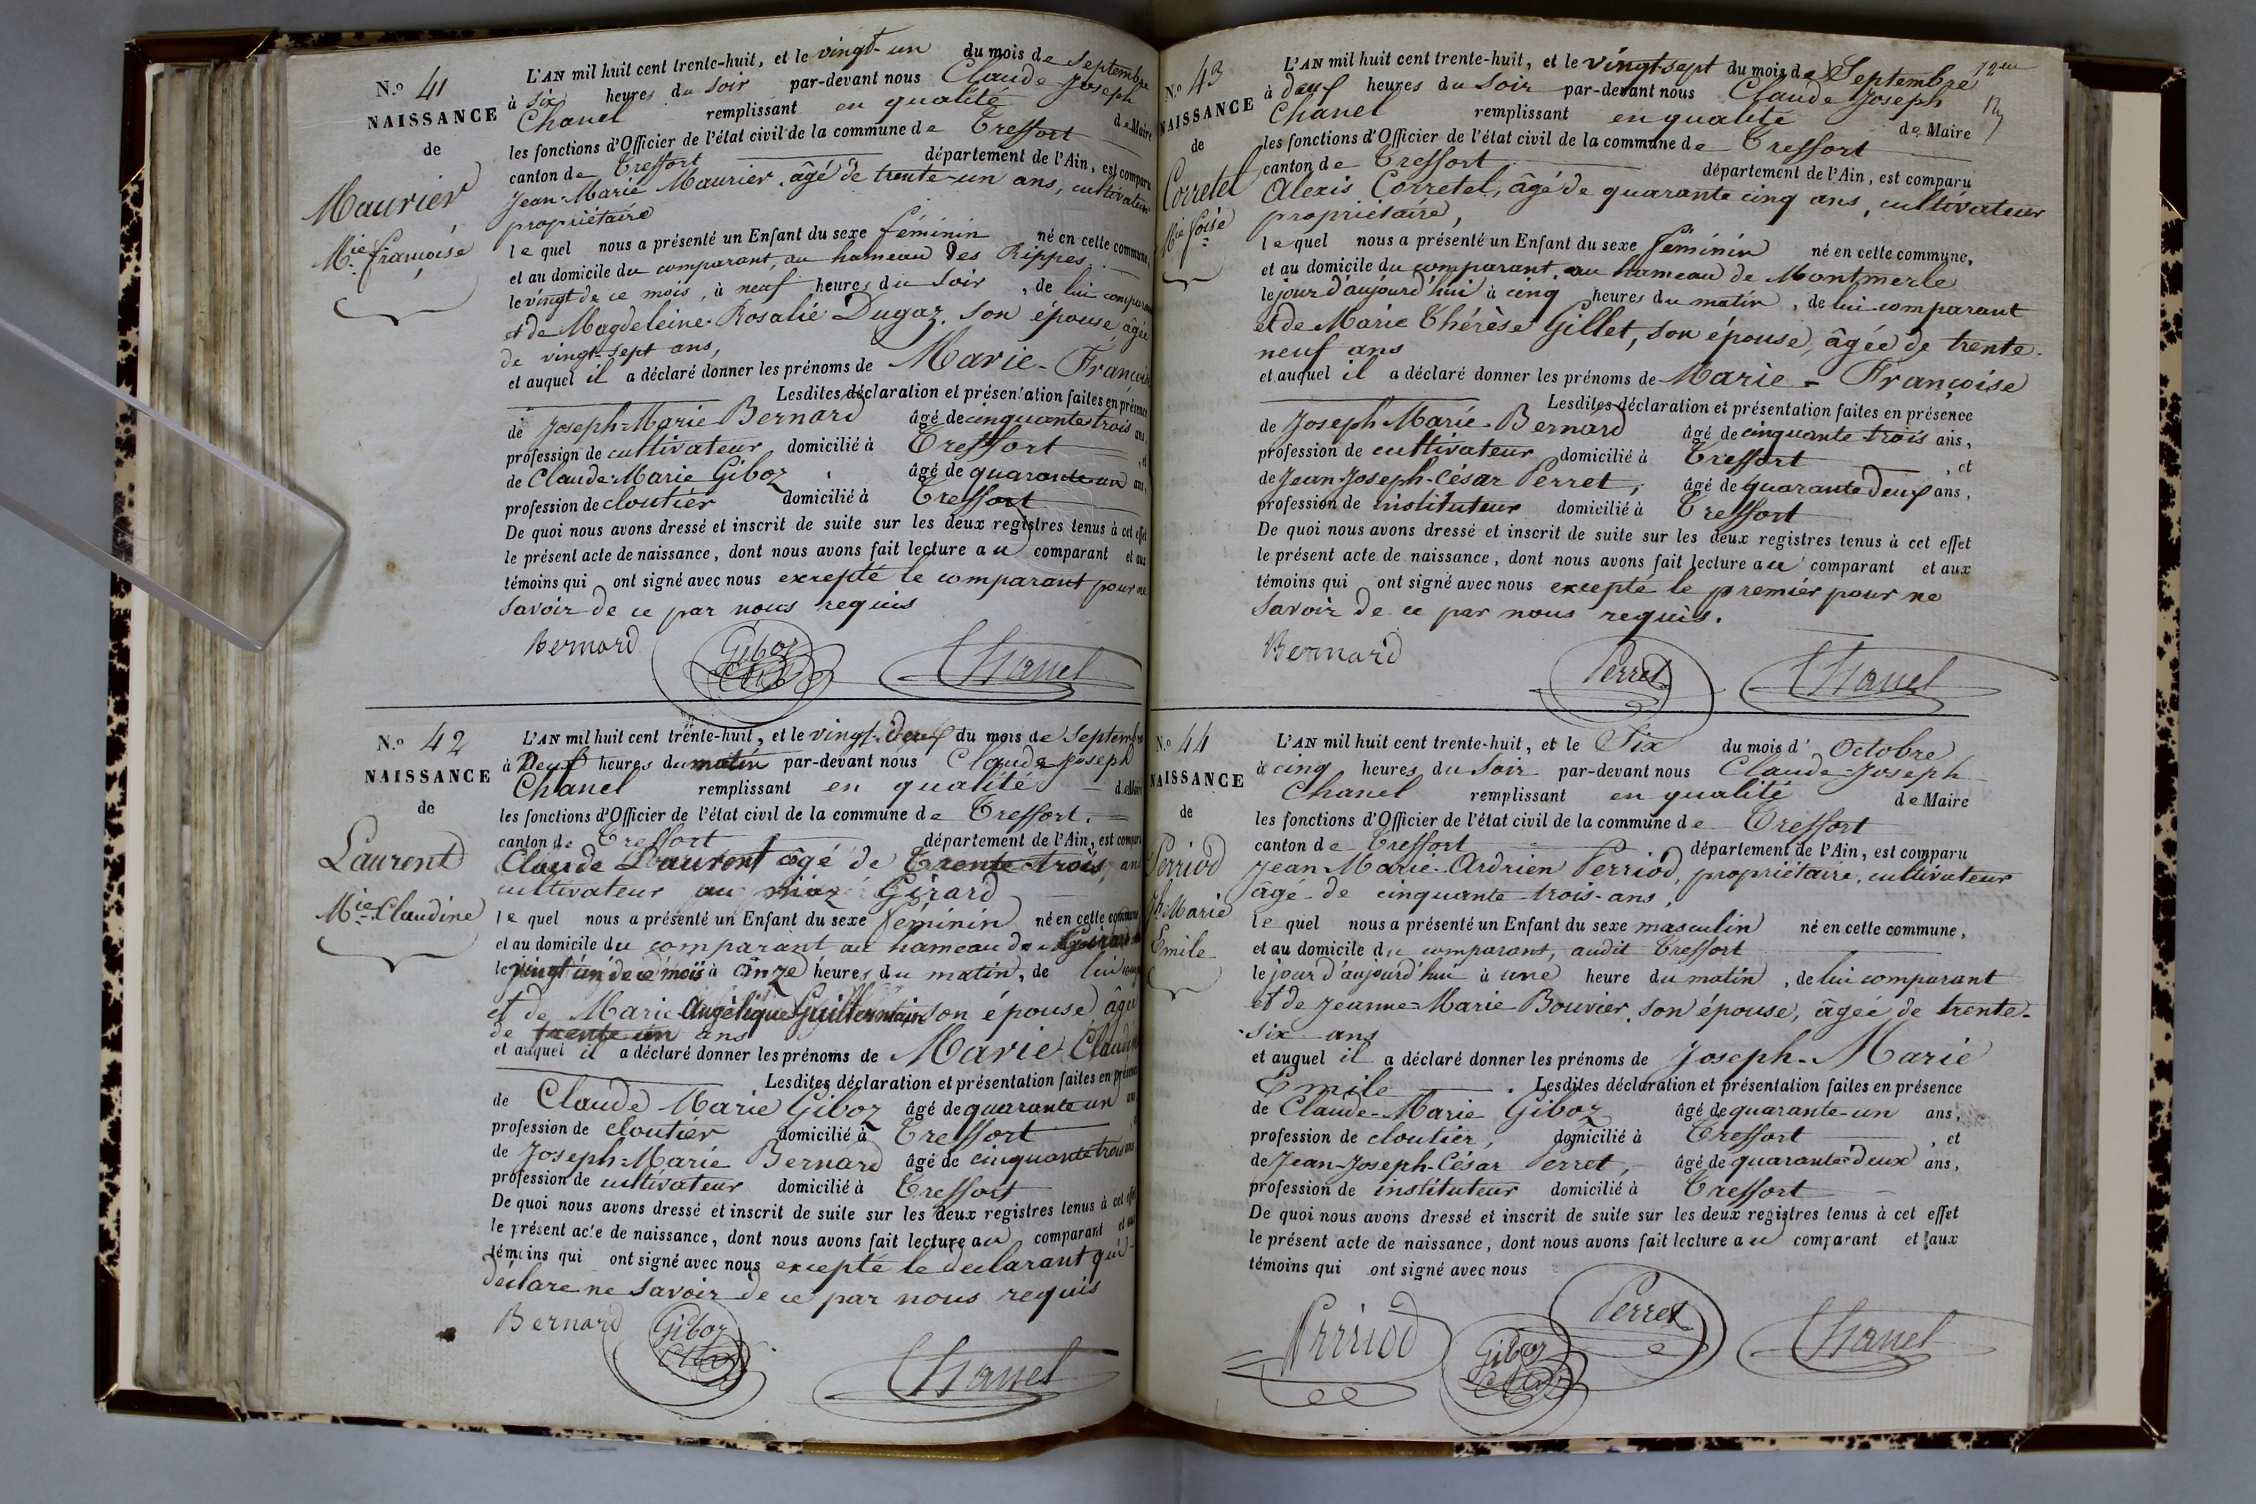 N.o 41
NAISSANCE
de
Maurier
Mie françoise
L'AN mil huit cent trente-huit, et le vingt-un du mois de Septembre
à six heures du soir par-devant nous Claude Joseph
Chanel remplissant en qualité de Maire
les fonctions d'Officier de l'état civil de la commune de Treffort
canton de Treffort département de l'Ain, est comparu
Jean-Marie Maurier, âgé de trente-un ans, cultivateur
propriétaire
le quel nous a présenté un Enfant du sexe féminin né en cette commune,
et au domicile du comparant, au hameau des Rippes,
le vingt de ce mois, à neuf heures du soir, de lui comparant
et de Magdeleine-Rosalie Dugaz, son épouse âgée
de vingt-sept ans,
et auquel il a déclaré donner les prénoms de Marie-Françoise
Lesdites déclaration et présentation faites en présence
de Joseph-Marie Bernard âgé de cinquante trois ans,
profession de cultivateur domicilié à Treffort, et
de Claude-Marie Giboz, âgé de quarante-un ans,
profession de cloutier domicilié à Treffort
De quoi nous avons dressé et inscrit de suite sur les deux registres tenus à cet effet
le présent acte de naissance, dont nous avons fait lecture au comparant et aux
témoins qui ont signé avec nous excepté le comparant pour ne
savoir de ce par nous requis
Bernard Giboz Chanel
N.o 42
NAISSANCE
de
Laurent
Mie Claudine
L'AN mil huit cent trente-huit, et le vingt-deux du mois de Septembre
à deux heures du matin par-devant nous Claude Joseph
Chanel remplissant en qualité de Maire
les fonctions d'Officier de l'état civil de la commune de Treffort.
canton de Treffort département de l'Ain, est comparu
Claude Laurent âgé de trente-trois ans
cultivateur au miaz Girard
le quel nous a présenté un Enfant du sexe féminin né en cette commune
et au domicile du comparant au hameau de
le vingt un de ce mois à onze heures du matin, de lui
et de Marie Angélique Guillermain son épouse, âgée
de trente un ans
et auquel il a déclaré donner les prénoms de Marie Claudine
Lesdites déclaration et présentation faites en présence
de Claude Marie Giboz âgé de quarante un ans
profession de cloutier domicilié à Treffort
de Joseph-Marie Bernard âgé de cinquante trois ans
profession de cultivateur domicilié à Treffort
De quoi nous avons dressé et inscrit de suite sur les deux registres tenus à cet effet
le présent acte de naissance, dont nous avons fait lecture au comparant et aux
témoins qui ont signé avec nous excepté le déclarant qui
déclare ne savoir de ce par nous requis
Bernard Giboz
Chanel
N.o 43
NAISSANCE
de
Corretel
Mie foise
L'AN mil huit cent trente-huit, et le vingt-sept du mois de Septembre
à deux heures du soir par-devant nous Claude Joseph
Chanel remplissant en qualité de Maire
les fonctions d'Officier de l'état civil de la commune de Treffort
canton de Treffort département de l'Ain, est comparu
Alexis Corretel, âgé de quarante cinq ans, cultivateur
propriétaire,
le quel nous a présenté un Enfant du sexe féminin né en cette commune,
et au domicile du comparant, au hameau de Montmerle
le jour d'aujourd'hui à cinq heures du matin, de lui comparant
et de Marie Thérèse Gillet, son épouse, âgée de trente-
neuf ans
et auquel il a déclaré donner les prénoms de Marie-Françoise
Lesdites déclaration et présentation faites en présence
de Joseph-Marie-Bernard âgé de cinquante trois ans,
profession de cultivateur domicilié à Treffort, et
de Jean-Joseph-César Perret, âgé de quarante deux ans,
profession de instituteur domicilié à Treffort
De quoi nous avons dressé et inscrit de suite sur les deux registres tenus à cet effet
le présent acte de naissance, dont nous avons fait lecture au comparant et aux
témoins qui ont signé avec nous excepté le premier pour ne
savoir de ce par nous requis.
Bernard Perret Chanel
N.o 44
NAISSANCE
de
Perriod
Jh Marie
Emile
L'AN mil huit cent trente-huit, et le Six du mois d' Octobre
à cinq heures du soir par-devant nous Claude-Joseph
Chanel remplissant en qualité de Maire
les fonctions d'Officier de l'état civil de la commune de Treffort
canton de Treffort département de l'Ain, est comparu
Jean-Marie-Ardrien Perriod, propriétaire, cultivateur
âgé de cinquante-trois-ans,
le quel nous a présenté un Enfant du sexe masculin né en cette commune,
et au domicile du comparant, audit Treffort
le jour d'aujourd'hui à une heure du matin, de lui comparant
et de Jeanne-Marie-Bouvier, son épouse, âgée de trente-
six ans
et auquel il a déclaré donner les prénoms de Joseph-Marie
Emile. Lesdites déclaration et présentation faites en présence
de Claude-Marie Giboz âgé de quarante-un ans,
profession de cloutier, domicilié à Treffort, et
de Jean-Joseph-César Perret, âgé de quarante-deux ans,
profession de instituteur domicilié à Treffort
De quoi nous avons dressé et inscrit de suite sur les deux registres tenus à cet effet
le présent acte de naissance, dont nous avons fait lecture au comparant et aux
témoins qui ont signé avec nous
Perriod Giboz Perret Chanel